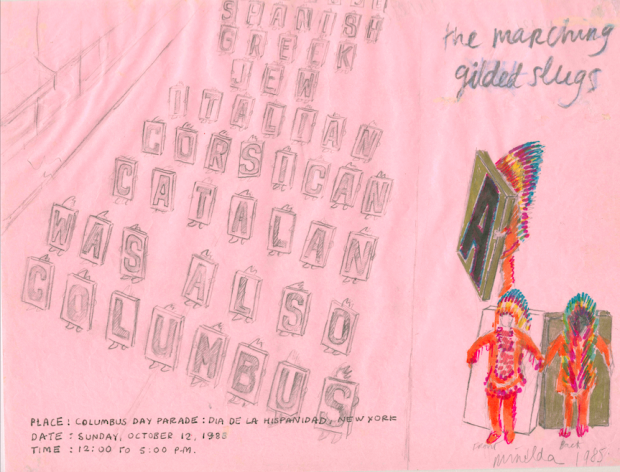 SPANISH
GREEK
JEW
ITALIAN
CORSICAN
CATALAN
WAS ALSO
COLUMBUS
the marching
gilded slugs
A
PLACE: COLUMBUS DAY PARADE: DIA DE LA HISPANIDAD, NEW YORK
DATE: SUNDAY, OCTOBER 12,
TIME: 12:00 TO 5:00 P.M.
Back
1985.